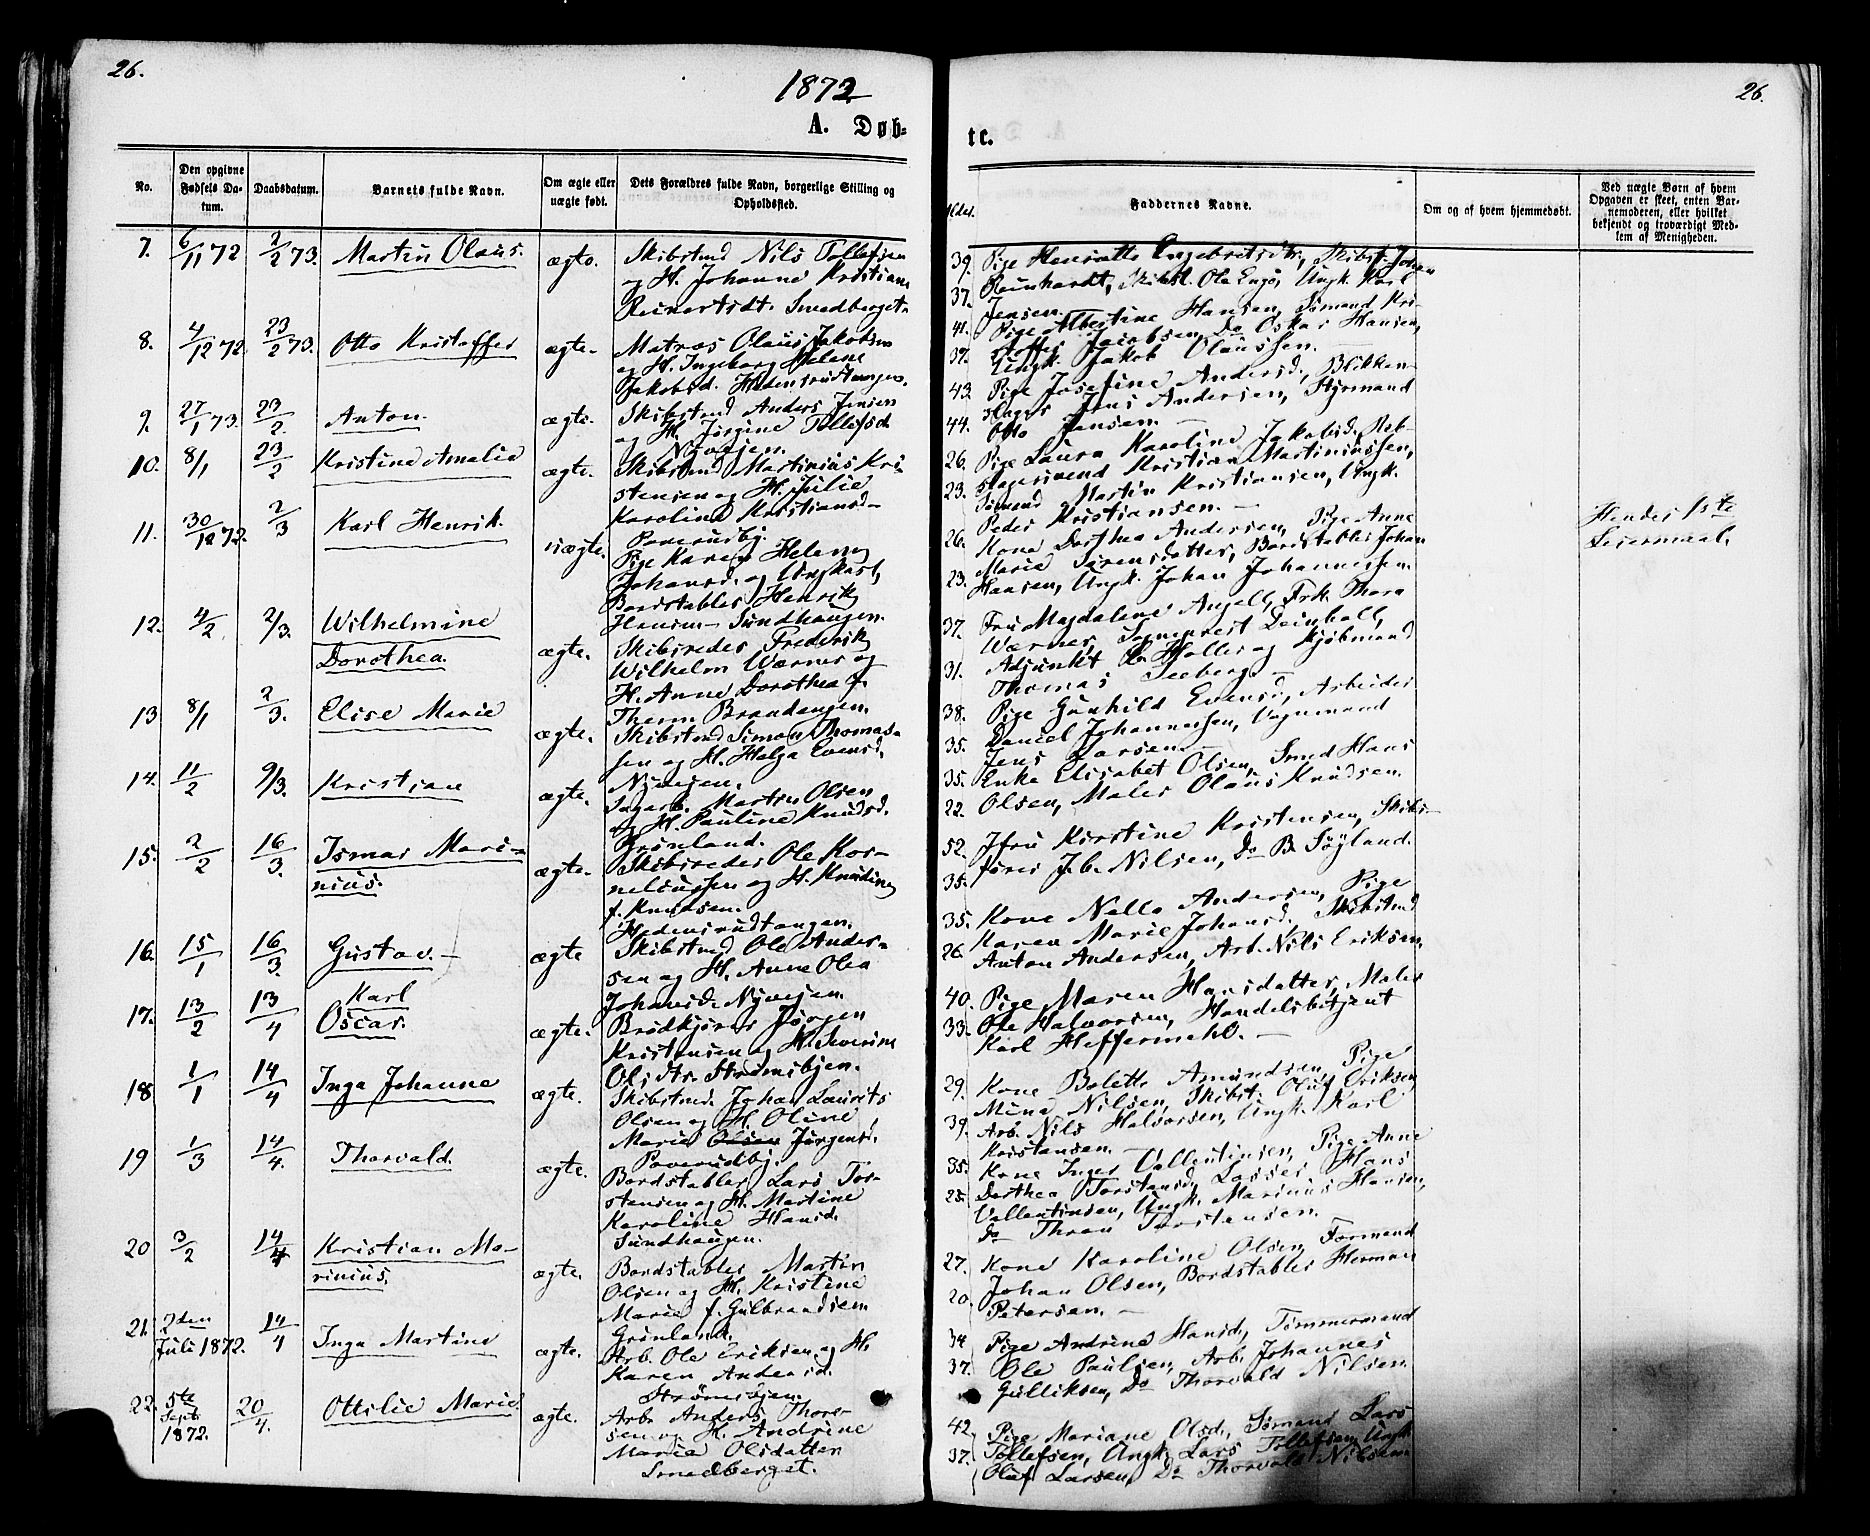 26.
1872
A. Døb-
No.
Den opgivne Fødsels Da-tum.
Daabsdatum.
Barnets fulde Navn.
Om ægte eller uægte født.
Dets Forældres fulde Navn, borgerlige Stilling og Opholdssted.
7. 6/11 72 2/2 73. Martin Olaus. ægte. Skibstmd Nils Tollefsen
og H. Johanne Kristiane
Reinertsdt. Smedberget.
8. 4/12 72. 23/2 73. Otto Kristoffer ægte. Matros Olaus Jakobsen
og H. Ingeborg Helene
Jakobsd. Hedensrudtangen.
9. 27/1 73. 23/2. Anton. ægte. Skibstmd Anders Jensen
og H. Jørgine Tollefsd.
Nyveien.
10. 8/1 23/2 Kristine Amalie ægte. Skibstmd Martinius Kri-
stensen og H. Julie
Karoline Kristiansd-
Poverudbj.
11. 30/12 72. 2/3 Karl Henrik. uægte. Pige Karen Helene
Johansd. og Ungkarl,
Bordstabler Henrik
Hansen- Sundhaugen.
12. 4/2 2/3. Wilhelmine
Dorothea. ægte. Skibsreder Frederik
Wilhelm Wærner og
H. Anne Dorothea f.
Therm Brandengen.
13 8/1 2/3. Elise Marie ægte. Skibstmd Simon Thomas-
sen og H. Helga Evensd.
Nyveien.
14. 11/2 9/3. Kristian ægte. Sagarb. Martin Olsen
og H. Pauline Knudsd.
Grønland.
15. 2/2 16/3. Ismar Mari-
nius. ægte. Skibsreder Ole Kor-
neliussen og H. Knudine
f. Knudsen.
Hedensrudtangen.
16. 15/1 16/3. Gustav. ægte Skibstmd Ole Ander-
sen og H. Anne Olea
Johansd. Nyveien.
17. 13/2 13/4 Karl
Oscar. ægte. Brødkjører Jørgen
Kristensen og H. Severine
Olsdtr. Strømsbjen.
18 1/1 14/4 Inga Johanne ægte. Skibstmd. Johan Laurits
Olsen og H. Oline
Marie Olsen Jørgensd.
Poverudbj.
19 1/3 14/4. Thorvald. ægte. Bordstabler Lars Tor-
stensen og H. Martine
Karoline Hansd.
Sundhaugen.
20 3/2 14/4 Kristian Ma-
rinius. ægte. Bordstabler Martin
Olsen og H. Kristine
Marie f. Gulbrandsen
Grønland.
21. 2den
Juli 1872. 14/4 Inga Martine ægte. Arb. Ole Eriksen og H.
Karen Andersd.
Strømsbjen.
22. 5te
Septr
1872. 20/4. Ottilie Marie ægte. Arb. Anders Thore-
sen og H. Andrine
Marie Olsdatter
Smedberget.
26.
te.
Alder.
Faddernes Navne.
Om og af hvem hjemmedøbt.
Ved uægte Børn af hvem Opgaven er skeet, enten Bar-nemoderen, eller hvilket bekjendt og troværdigt Med-lem af Menigheden.
39. Pige Henriette Engebretsdtr, Skibst. Johan
37. Reinhardt, Skibst. Ole Engø, Ungk. Karl
Jensen.
41. Pige Albertine Hansen, Sømand Kri-
stoffer Jacobsen, Do Oskar Hansen,
39. Ungk. Jakob Olaussen.
43. Pige Josefine Andersd., Blikken-
slager Jens Andersen, Styrmand
44. Otto Jansen.
26. Pige Laura Karoline Jakobsd. Reb-
slagersvend Kristian Martiniussen,
23. Sømand Martin Kristiansen, Ungk.
Peder Kristiansen.
26. Kone Dorthea Andersen, Pige Anne
Marie Sørensdatter, Bordstabler Johan
23. Hansen, Ungk. Johan Johannessen.
Hendes 1ste
Leiermaal.
37. Fru Magdalene Angell, Frk. Thora
Wærner, Sogneprest Leinhall,
31. Adjunkt L. Holler og Kjøbmand
Thomas Seeberg.
38. Pige Gunhild Evensd, Arbeider
35. Daniel Johannessen, Vognmand
Jens Larsen.
35. Enke Elisabet Olsen, Smed Hans
22. Olsen, Maler Olaus Knudsen.
52. Jfru Kirstine Kristensen, Skibs-
35. fører J. b. Nilsen, Do B. Søyland.
35. Kone Nelle Andersen, Pige
Karen Marie Johansd. Skibstmd
26. Anton Andersen, Arb. Nils Eriksen,
40. Pige Maren Hansdatter, Maler
33. Ole Halvorsen, Handelsbetjent
Karl Heffermehl.
29. Kone Bolette Amundsen, Pige
Mina Nilsen, Skibst. Oluf Eriksen,
39. Arb. Nils Halvorsen, Ungk. Karl
Kristensen.
35. Kone Inger Vallentinsen, Pige Anne
25. Dorthea Torstensd, Lasser Hans
Vallentinsen, Ungk. Marinus Hansen,
Do Thron Torstensen.
27. Kone Karoline Olsen, Formand
20. Johan Olsen, Bordstabler Herman
Petersen.
34 Pige Andrine Hansd., Tømmermand
37. Ole Paulsen, Arb. Johannes
Gulliksen, Do Thorvald Nilsen.
42. Pige Mariane Olsd., Sømand Lars
37. Tollefsen, Ungk. Lars Tollefsen, Ungk.
Oluf Larsen, Do Thorvald Nilsen.